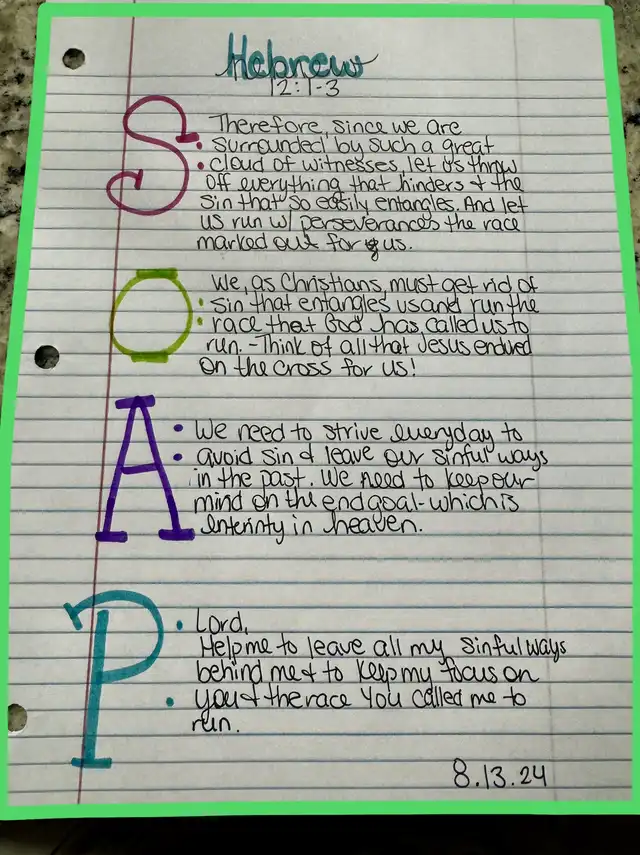 Hebrews
12:1-3
S: Therefore, since we are
surrounded by such a great
cloud of witnesses, let us throw
off everything that hinders & the
sin that so easily entangles. And let
us run w/ perseverances the race
marked out for us.
O: We, as Christians, must get rid of
sin that entangles us and run the
race that God has called us to
run. - Think of all that Jesus endured
on the cross for us!
A: We need to strive everyday to
avoid sin & leave our sinful ways
in the past. We need to keep our
mind on the end goal - which is
enterinty in heaven.
P: Lord,
Help me to leave all my sinful ways
behind me & to keep my focus on
you & the race You called me to
run.
8.13.24